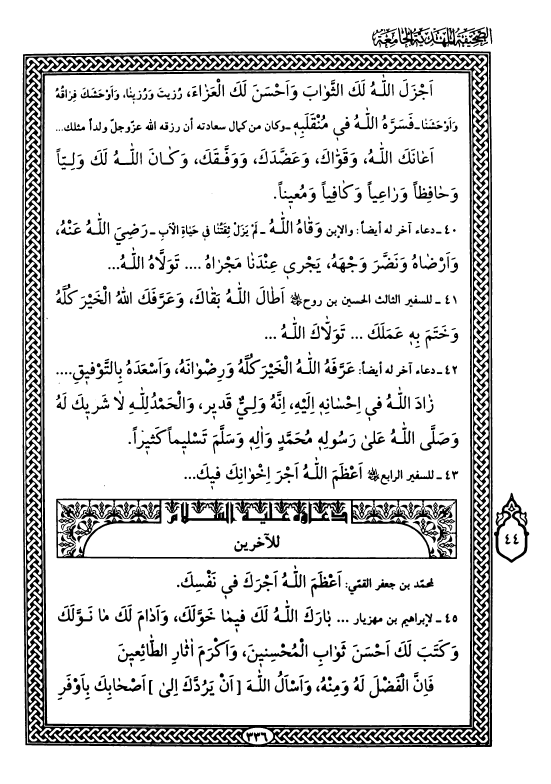 الصَّحِيفَةُ الْمَهْدِيَّةُ الْجَامِعَة
اَجْزَلَ اللّٰهُ لَكَ الثَّوٰابَ وَاَحْسَنَ لَكَ الْعَزٰاءَ، رُزِيتَ وَرُزِينٰا، وَاَوْحَشَكَ فِرٰاقُهُ
وَاَوْحَشَنٰا ـ فَسَرَّهُ اللّٰهُ في مُنْقَلَبِهِ ـ وكان من كمال سعادته أن رزقه الله عزّوجلّ ولداً مثلك...
اَعٰانَكَ اللّٰهُ، وَقَوّٰاكَ، وَعَضَدَكَ، وَوَفَّقَكَ، وَكٰانَ اللّٰهُ لَكَ وَلِيّاً
وَحٰافِظاً وَرٰاعِياً وَكٰافِياً وَمُعيناً.
٤٠ ـ دعاء آخر له أيضاً: والابن وَقٰاهُ اللّٰهُ ـ لَمْ يَزَلْ ثِقَتُنٰا فِي حَيٰاةِ الْاَبِ ـ رَضِيَ اللّٰهُ عَنْهُ،
وَاَرْضٰاهُ وَنَضَّرَ وَجْهَهُ، يَجْري عِنْدَنٰا مَجْرٰاهُ .... تَوَلّٰاهُ اللّٰهُ...
٤١ ـ للسفير الثالث الحسين بن روح اَطٰالَ اللّٰهُ بَقٰاكَ، وَعَرَّفَكَ اللّٰهُ الْخَيْرَ كُلَّهُ
وَخَتَمَ بِهِ عَمَلَكَ ... تَوَلّٰاكَ اللّٰهُ ...
٤٢ ـ دعاء آخر له أيضاً: عَرَّفَهُ اللّٰهُ الْخَيْرَ كُلَّهُ وَرِضْوٰانَهُ، وَاَسْعَدَهُ بِالتَّوْفيقِ....
زٰادَ اللّٰهُ في اِحْسٰانِهِ اِلَيْهِ، اِنَّهُ وَلِيٌّ قَديرٌ، وَالْحَمْدُ لِلّٰهِ لٰا شَريكَ لَهُ
وَصَلَّى اللّٰهُ عَلىٰ رَسُولِهِ مُحَمَّدٍ وَاٰلِهِ وَسَلَّمَ تَسْليماً كَثيراً.
٤٣ ـ للسفير الرابع اَعْظَمَ اللّٰهُ اَجْرَ اِخْوٰانِكَ فيكَ...
دعاؤه عليه السلام
للآخرين
٤٤
لمحمّد بن جعفر القمّي: اَعْظَمَ اللّٰهُ اَجْرَكَ في نَفْسِكَ.
٤٥ ـ لإبراهيم بن مهزيار ... بٰارَكَ اللّٰهُ لَكَ فيمٰا خَوَّلَكَ، وَاَدٰامَ لَكَ مٰا نَوَّلَكَ
وَكَتَبَ لَكَ اَحْسَنَ ثَوٰابِ الْمُحْسِنينَ، وَاَكْرَمَ اٰثٰارِ الطّٰائِعينَ
فَاِنَّ الْفَضْلَ لَهُ وَمِنْهُ، وَاَسْاَلُ اللّٰهَ [ اَنْ يَرُدَّكَ اِلىٰ ] اَصْحٰابِكَ بِاَوْفَرِ
٣٣٦